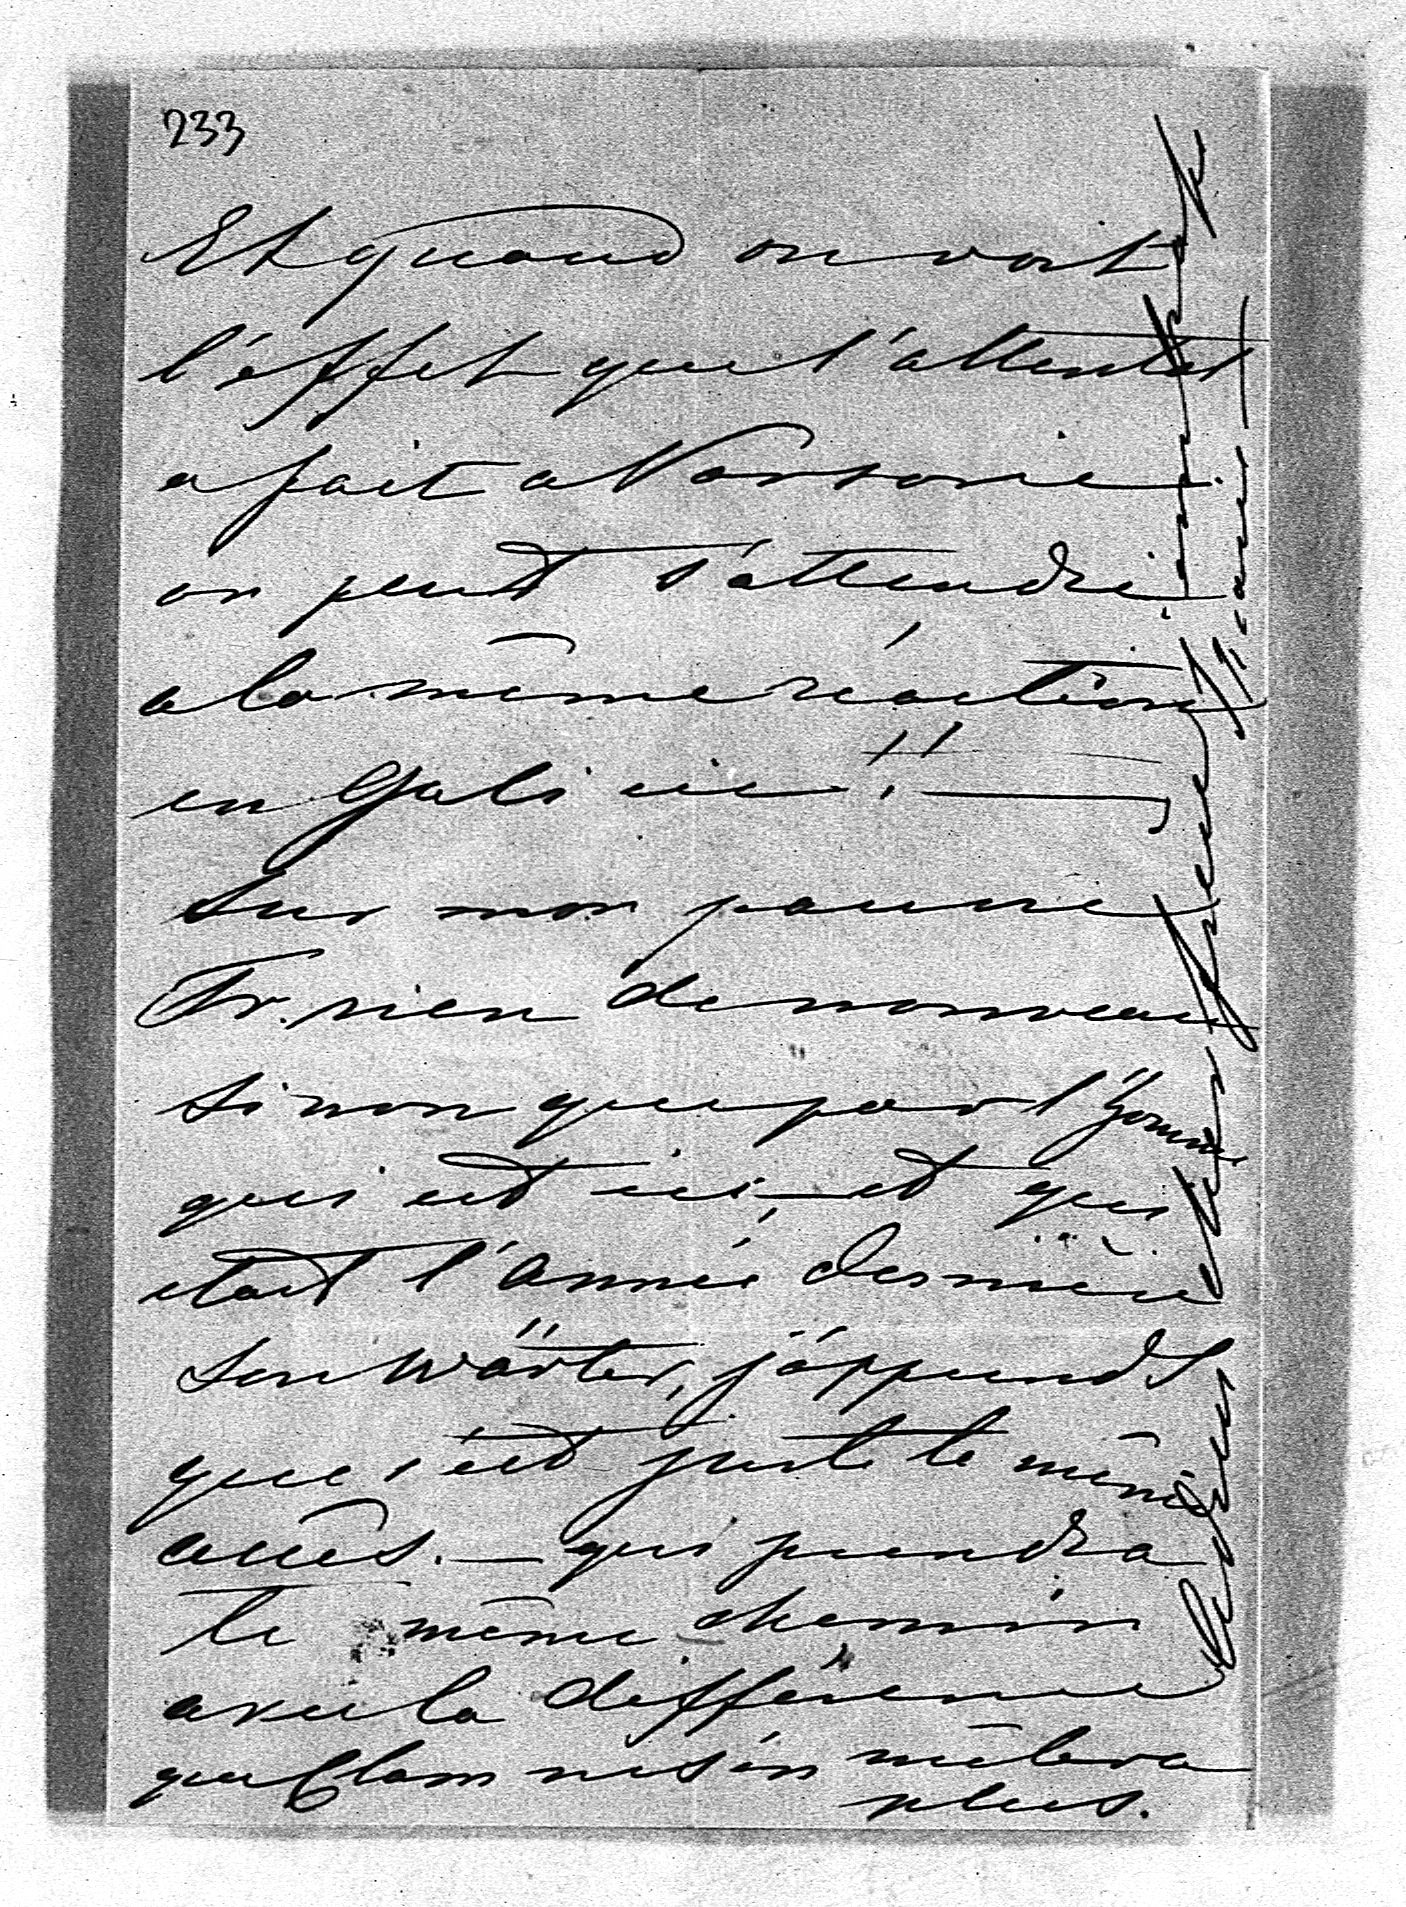 233
Et quand on voit
l'éffet que l'attentat
a fait a Varsovie
on peut s'attendre
a la même réaction
en Galicie!! —
Sur mon pauvre
Fr. rien de nouveau
sinon que par l'homme
qui est ici et qui
etait l'année dernière
son Wärter, j'apprends
que c'est juste le même
accès. — qui prendra
le même chemin
avec la différence
que Clam ne s'en mêlera
plus.